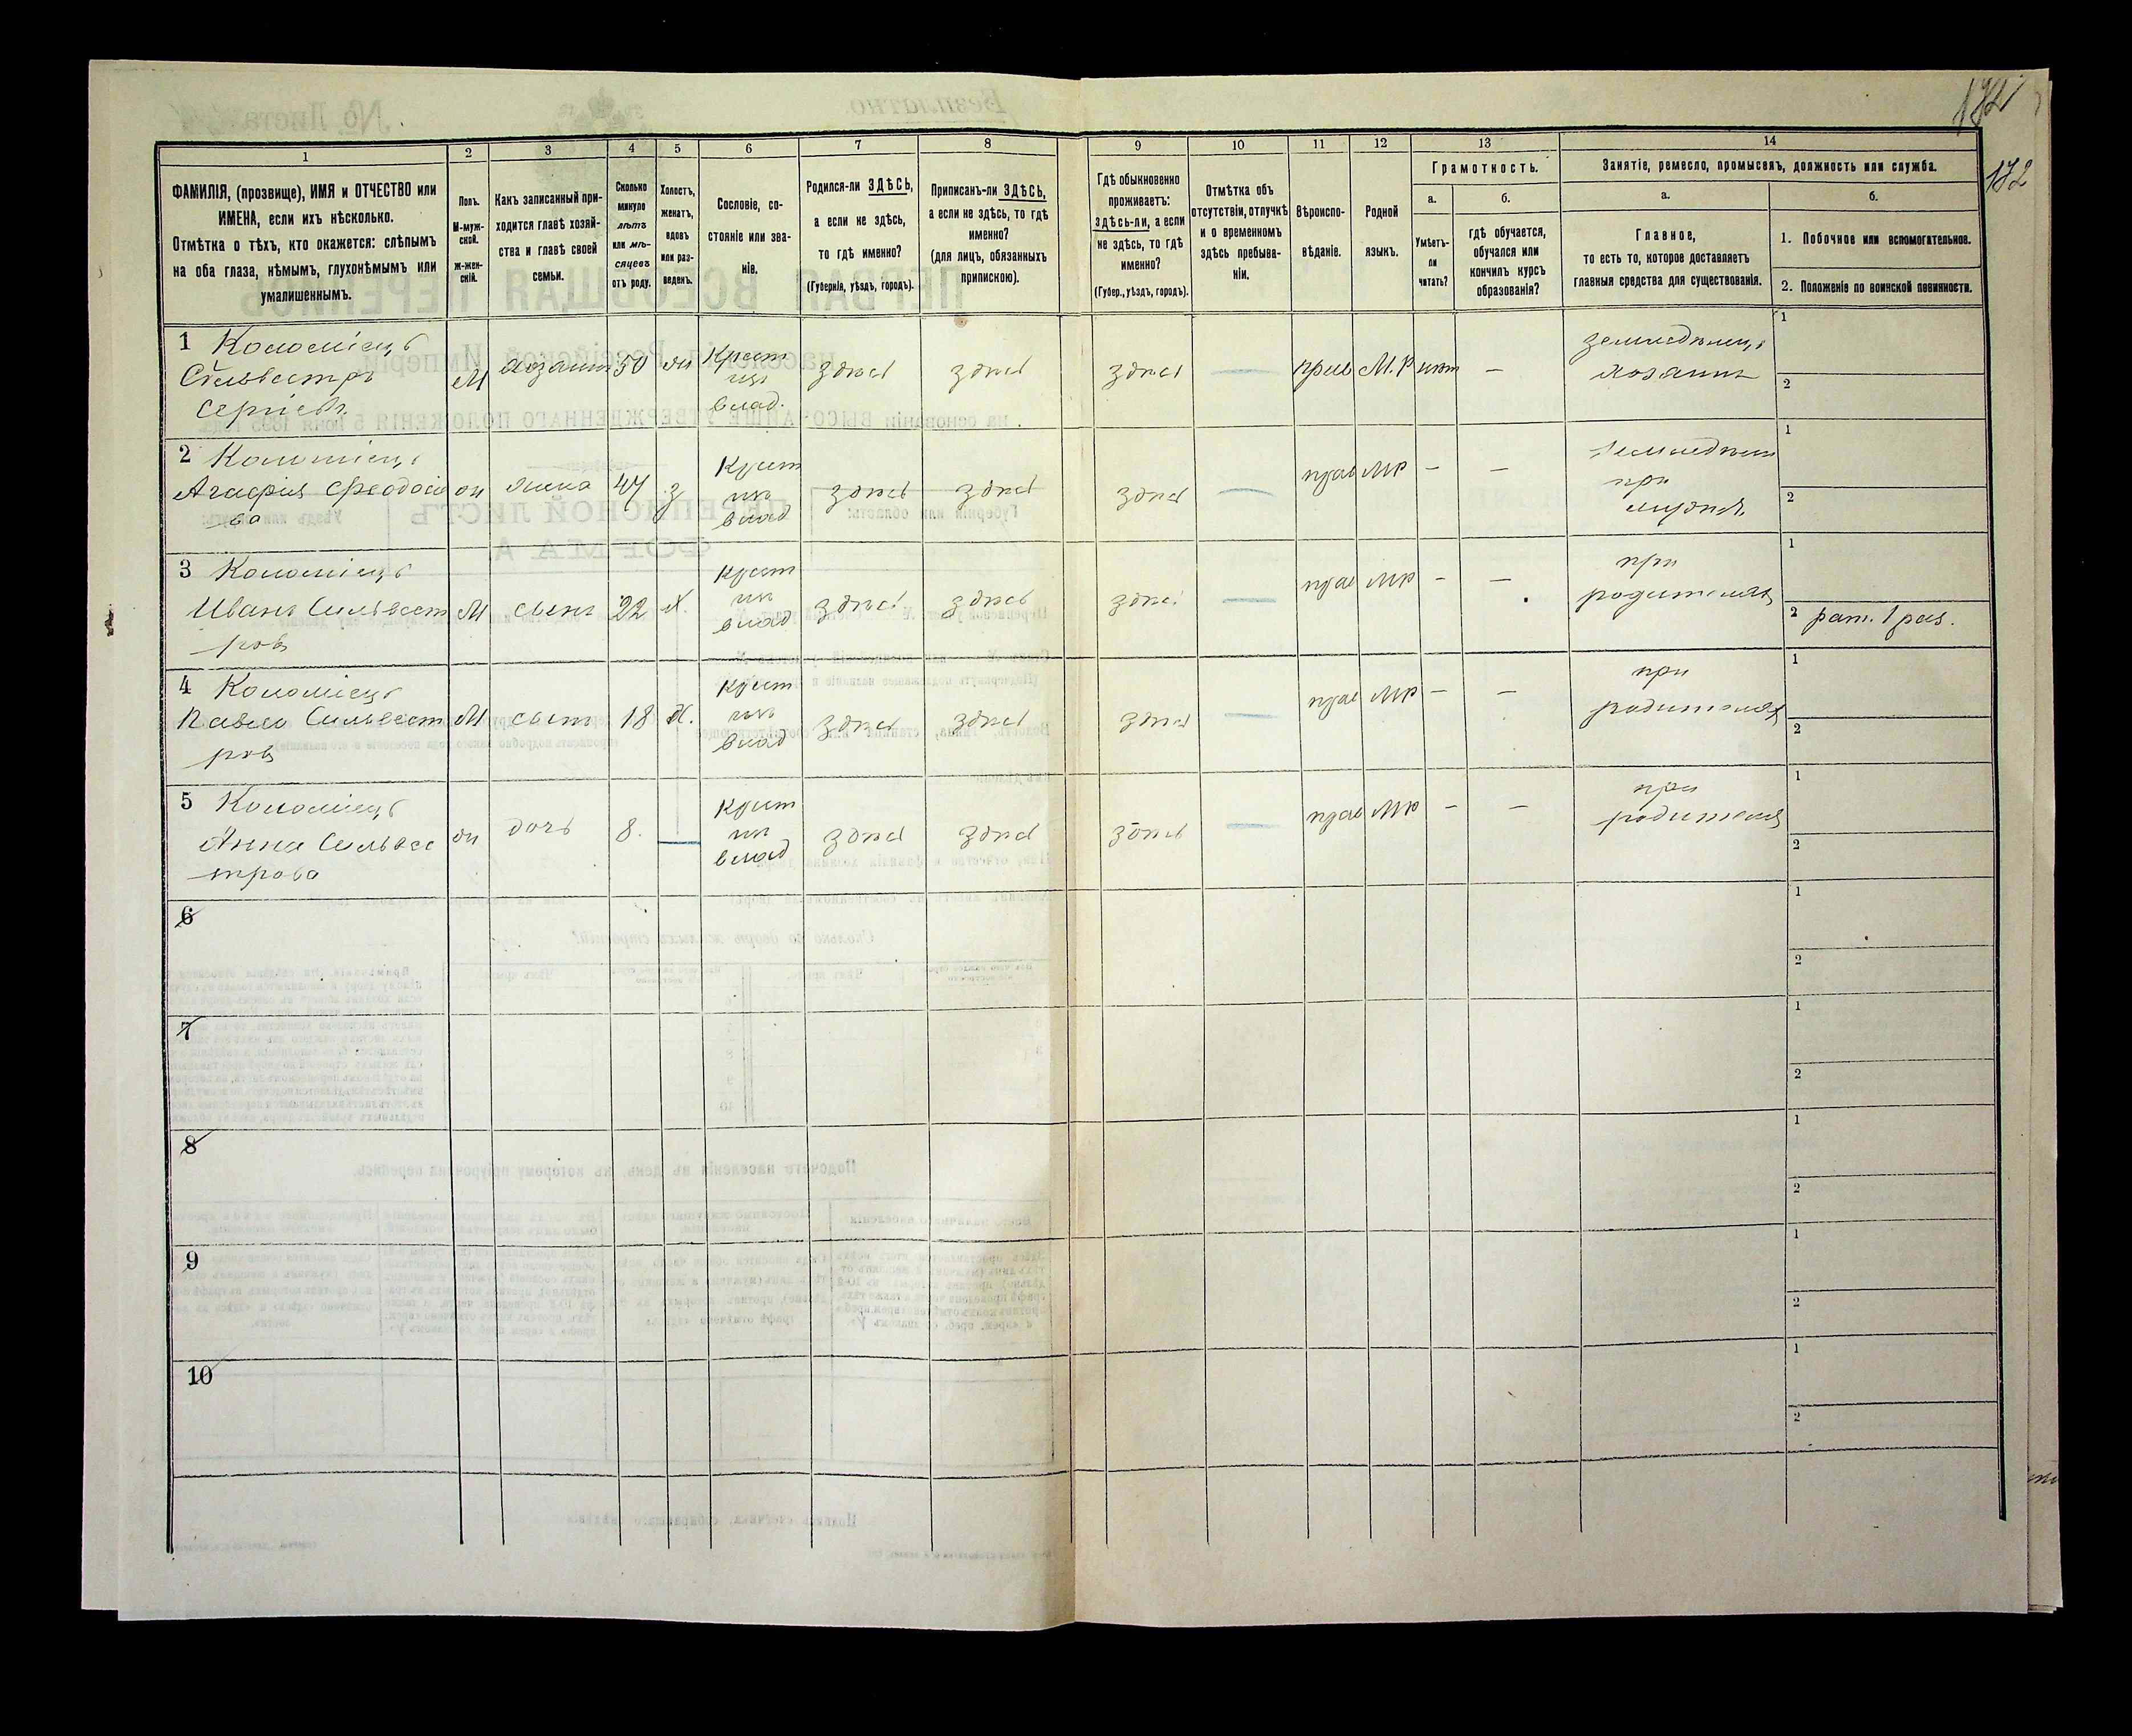 172
172
1 2 3 4 5 6 7 8 9 10 11 12 13 14
ФАМИЛІЯ, (прозвище), ИМЯ и ОТЧЕСТВО или
ИМЕНА, если ихъ нѣсколько.
Отмѣтка о тѣхъ, кто окажется: слѣпымъ
на оба глаза, нѣмымъ, глухонѣмымъ или
умалишеннымъ.
Полъ.
М-муж-
ской.
ж-жен-
скій.
Какъ записанный при-
ходится главѣ хозяй-
ства и главѣ своей
семьи.
Сколько
минуло
лѣтъ
или мѣ-
сяцевъ
отъ роду.
Холостъ,
женатъ,
вдовъ
или раз-
веденъ.
Сословіе, со-
стояніе или зва-
ніе.
Родился-ли ЗДѢСЬ,
а если не здѣсь,
то гдѣ именно?
(Губернія, уѣздъ, городъ).
Приписанъ-ли ЗДѢСЬ,
а если не здѣсь, то гдѣ
именно?
(для лицъ, обязанныхъ
припискою).
Гдѣ обыкновенно
проживаетъ:
здѣсь-ли, а если
не здѣсь, то гдѣ
именно?
(Губер., уѣздъ, городъ).
Отмѣтка объ
отсутствіи, отлучкѣ
и о временномъ
здѣсь пребыва-
ніи.
Вѣроиспо-
вѣданіе.
Родной
языкъ.
Грамотность.
а.
Умѣетъ-
ли
читать?
б.
гдѣ обучается,
обучался или
кончилъ курсъ
образованія?
Занятіе, ремесло, промыселъ, должность или служба.
а.
Главное,
то есть то, которое доставляетъ
главныя средства для существованія.
б.
1. Побочное или вспомогательное.
2. Положеніе по воинской повинности.
1 Коломіецъ
Сильвестръ
Сергіевъ
М хозяинъ 50 жн Крест
изъ
влад.
здѣсь здѣсь здѣсь — прав М.Р нѣт —
земледѣлецъ
хозяинъ
1
2
2 Коломіецъ
Агафія Феодосіе
ва
жн жена 47 з Крест
изъ
влад
здѣсь здѣсь здѣсь — прав МР — —
земледѣлец
при
мужѣ
1
2
3 Коломіецъ
Иванъ Сильвест
ровъ
М сынъ 22 х. Крест
изъ
влад
здѣсь здѣсь здѣсь — прав МР — —
при
родителях
1
2 рат. 1 раз.
4 Коломіецъ
Павелъ Сильвест
ровъ
М сынъ 18 х. Крест
изъ
влад
здѣсь здѣсь здѣсь — прав МР — —
при
родителях
1
2
5 Коломіецъ
Анна Сильвес
трова
жн дочь 8. — Крест
изъ
влад
здѣсь здѣсь здѣсь — прав МР — —
при
родителях
1
2
6
1
2
7
1
2
8
1
2
9
1
2
10
1
2